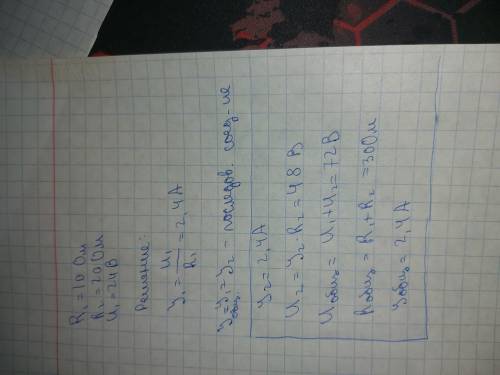 R₁=10 Ом
R₂=20 Ом
U₁=24В
Решение:
У₁= U₁/R₁ =2,4А
Уобщ=У₁=У₂ - последов. соед-ие
У₂=2,4А
U₂=У₂·R₂=48В
Uобщ= U₁+U₂=72В
Rобщ= R₁+R₂ =30Ом
Уобщ= 2,4А